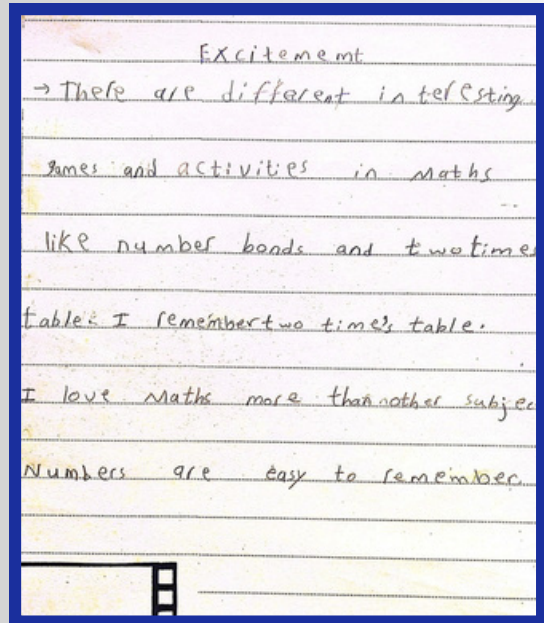 Excitememt
→ There are different interesting
games and activities in Maths
like number bonds and two times
table. I remember two time's table.
I love Maths more than nother subjec
Numbers are easy to remember.